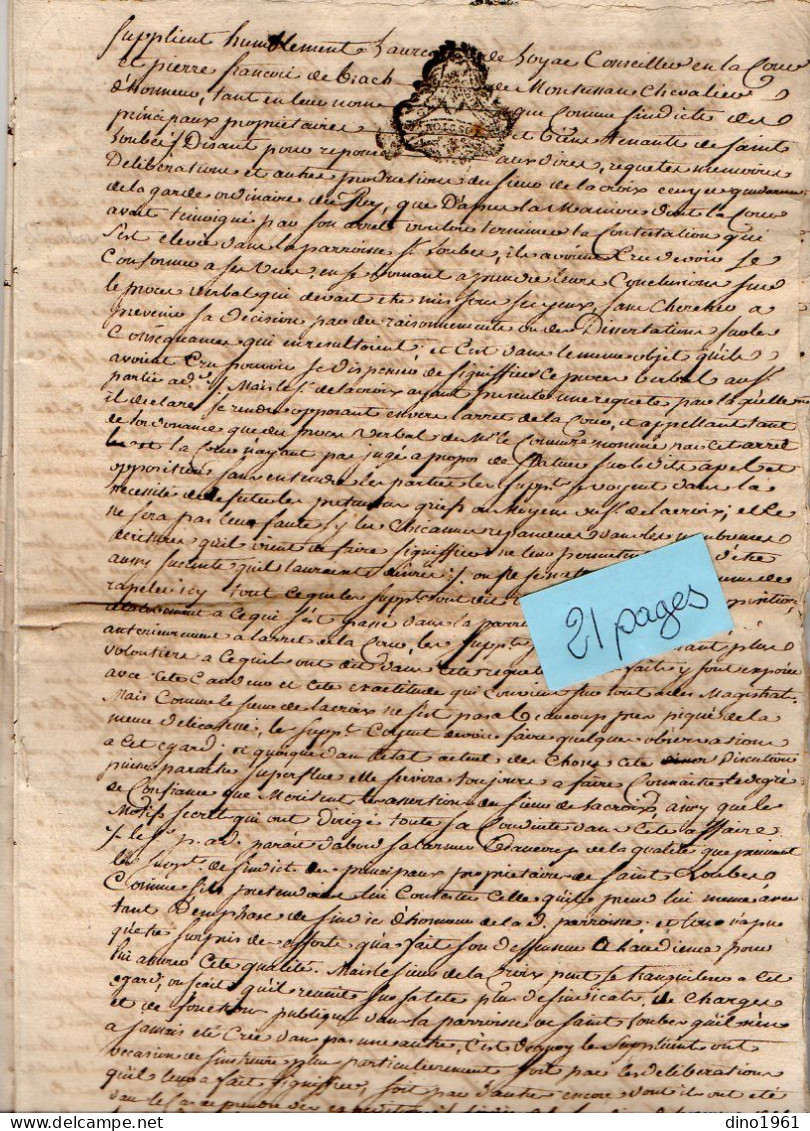 Supplient humblement Laurent de Loyac Conseiller en la Cour
et pierre francois de Brach de Montussan Chevalier
d'honneur, tant en leur nom que Comme sindicts des
principaux propriétaires et bien tenants de saint
Loubés Disant pour reponse aux dires, requetes memoires
Deliberations et autres productions du sieur de lacroix ecuyer gendarme
de la garde ordinaire du Roy, que D'apres la Maniere dont la Cour
avoit temoigné par son arret vouloir terminer la Contestation qui
s'est elevée dans la parroisse St Loubes, ils avoient Cru devoir se
Conformer a ses vues en se bornant a prendre leurs Conclusions sur
le proces verbal qui devait etre mis sous ses yeux sans Chercher a
prevenir sa Decision par des raisonnements ou des Dissertations sur les
Consequances qui en resultoient; et C'est dans le meme objet qu'ils
avoient Cru pouvoir se dispenser de signiffier Ce proces verbal au sr
partie ade. Mais le sr. de lacroix ayant presenté une requete par laquelle
il declare se rendre opposant envers l'arret de la Cour, et appellant tant
de l'ordonance que du proces verbal de Mr le Commre nommé par cet arret
et la Cour n'ayant pas jugé a propos de statuer sur lesdits apel et
opposition sans entendre les parties les suppts se voyent dans la
necessité de refuter les pretendus griefs ou moyens du sr. de lacroix; et Ce
ne sera pas leur faute sy les Chicannes repandues dans les nombreuses
ecritures qu'il vient de faire signiffier ne leur permettent d'etre
aussy succints qu'ils l'auroient desiré /.
rapeler icy tout Ce que les suppts ont dit position
relativement a Ce qui s'est passé dans la parroisse
anterieurement a l'arret de la Cour, les suppts plus
volontiers a Ce qu'ils ont dit dans Cete requete faits y sont exposés
avec Cete Candeur et Cete exactitude qui Convient sur tout a des Magistrats
Mais Comme le sieur de lacroix ne s'est pas a beaucoup pres piqué de la
meme delicatesse, les suppts Croyent devoir faire quelques observations
a Cet egard; et quoique dans l'etat actuel des Choses Cete Discution
puisse paraitre superflue elle servira toujours a faire Connaitre le degré
de Confiance que Meritent les assertions du sieur de lacroix, ainsy que les
Motifs secrets qui ont dirigé toute sa Conduite dans Cete affaire
/. le sr p. ad. paroit d'abord s'alarmer beaucoup de la qualité que prennent
les suppts. de sindicts des principaux propriétaires de saint Loubes
Comme s'ils pretendoient lui Contester Celle qu'ils prend lui meme avec
tant d'emphase de sindic d'honneur de la d. parroisse; et l'on n'a pu
qu'etre surpris des efforts qu'a fait son deffenseur a l'audience pour
lui assurer Cete qualité. Mais le sieur de la Croix peut se tranquiliser a Cet
egard, on sait qu'il reunit sur sa tete plus de sindicats, de Charges
et de fonctions publiques dans la parroisse de saint Loubes qu'il n'en
a jamais eté Créé dans pas une autre, C'est de quoy les suppliants ont
occasion de s'instruire plus particulierement soit par les deliberations
qu'il leur a fait signiffier, soit par d'autres encore dont ils ont eté
21 pages
dino1961